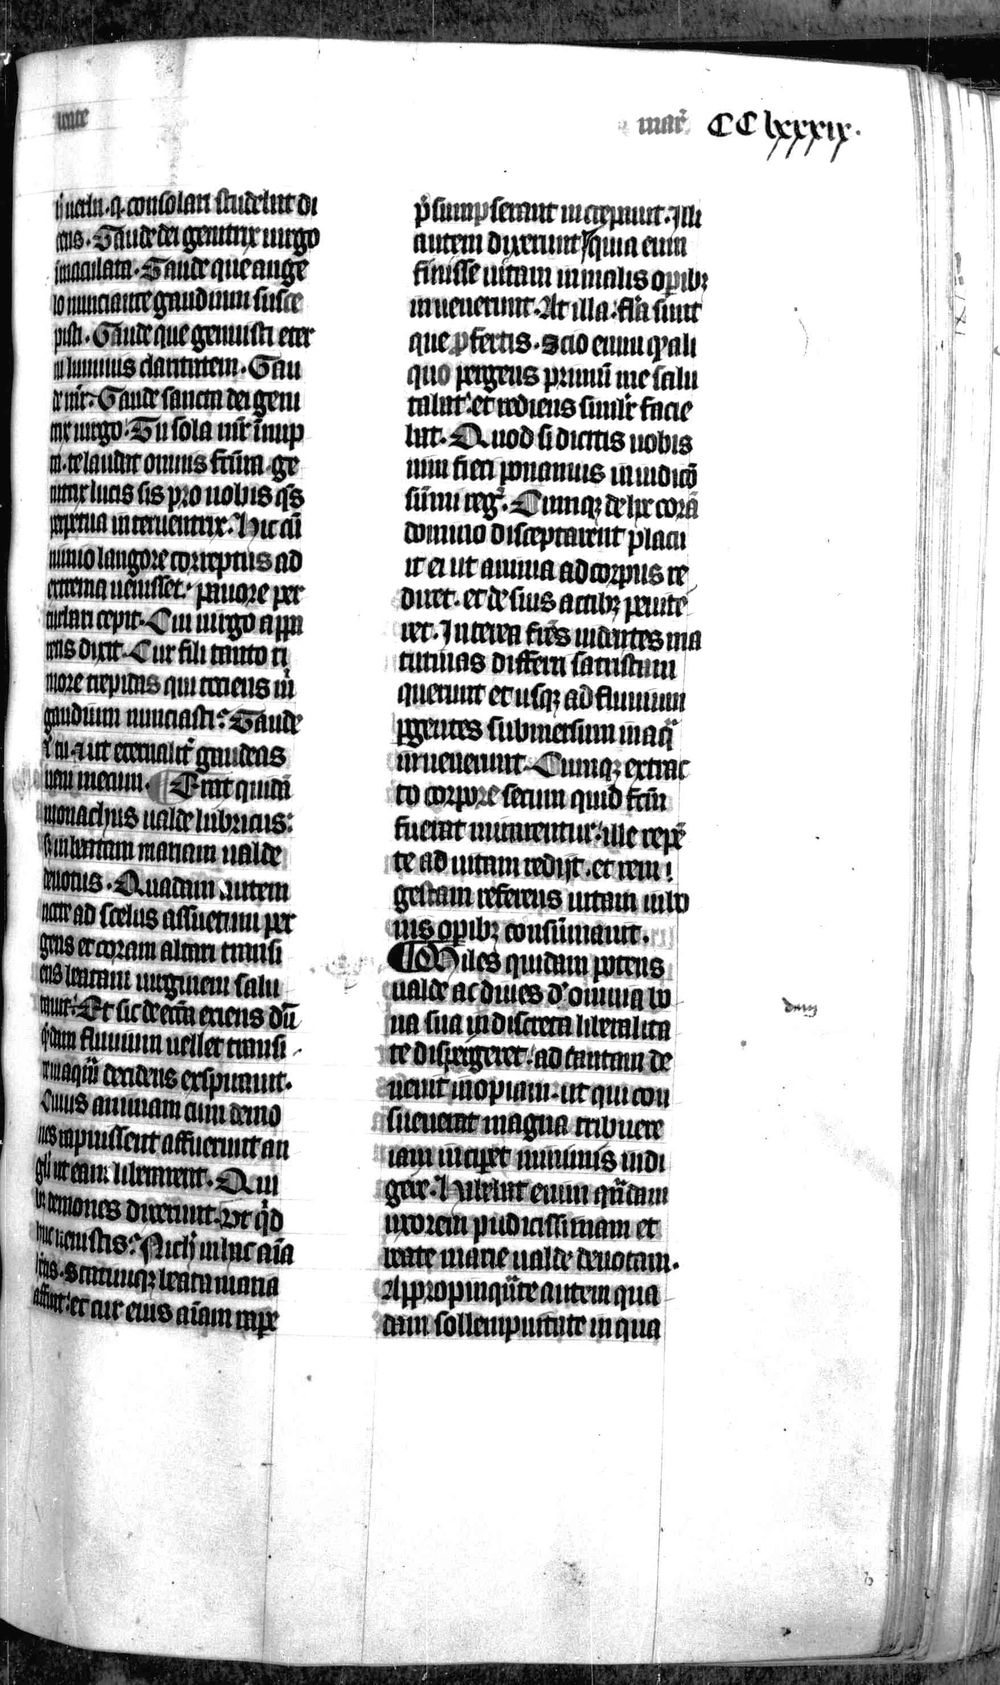 mar̄ CC lxxxix.
consolari studebat di
cens. Gaude dei genitrix uirgo
inmaculata. Gaude que ange
lo nunciante gaudium susce
pisti. Gaude que genuisti eter
ni luminis claritatem. Gau
de mr̄. Gaude sancta dei geni
trix uirgo. Tu sola mr̄ īnup
ta. te laudat omnis fc̄ūra. ge
nitrix lucis sis pro nobis q̄s
perpetua interuentrix. Hic cū
nimio langore correptus ad
extrema uenisset. pauore per
turbari cepit. Cui uirgo appa
rens dixit. Cur fili tanto ti
more trepidas qui tociens m̄
gaudium nunciasti. Gaude
et tu. ⁊ ut eternalit̄ gaudeas
ueni mecum. ¶ Erat quidā
monachus ualde lubricus:
s; in beatam mariam ualde
deuotus. Quadam autem
nocte ad scelus assuetum per
gens et coram altari transi
ens beatam uirginem salu
tauit. Et sic de ecc̄ia exiens dū
quendam fluuium uellet transi
re in aquā decidens exspirauit.
Cuius animam cum demo
nes rapuissent affuerunt an
gli ut eam liberarent. Qui
bz demones dixerunt. Vt q̄d
huc uenistis. Nichil in hac aīa
habetis. Statimqz beata maria
affuit. et cur eius aīam rape
p̄sumpserant increpauit. Illi
autem dixerunt quia eum
finisse uitam in malis op̄ibz
inuenerunt. At illa. fl̄a sunt
que ꝓfertis. Scio enim qꝫ ali
quo pergens primū me salu
tabat. et rediens similr̄ facie
bat. Quod si dicitis uobis
uim fieri ponamus in iudicō
sūmi reḡ. Cumqz de hac corā
domino disceptarent placu
it ei ut anima ad corpus re
diret. et de suis actibz penite
ret. Interea frēs uidentes ma
tutinas differri sacristam
querunt et usqz ad fluuium
ꝑgentes submersum in aq̄
inuenerunt. Cumqz extrac
to corpore secum quid fc̄m
fuerat mirarentur. ille repē
te ad uitam redijt. et rem
gestam referens uitam in bo
nis op̄ibz consūmauit.
¶ Miles quidam potens
ualde ac diues d' omnia bo
na sua indiscreta liberalita
te dispergeret. ad tantam de
uenit inopiam. ut qui con
sueuerat magna tribuere
iam incip̄et minimis indi
gere. Habebat enim q̄dam
uxorem pudicissimam et
beate marie ualde deuotam.
Appropinquāte autem qua
dam sollempnitate in qua